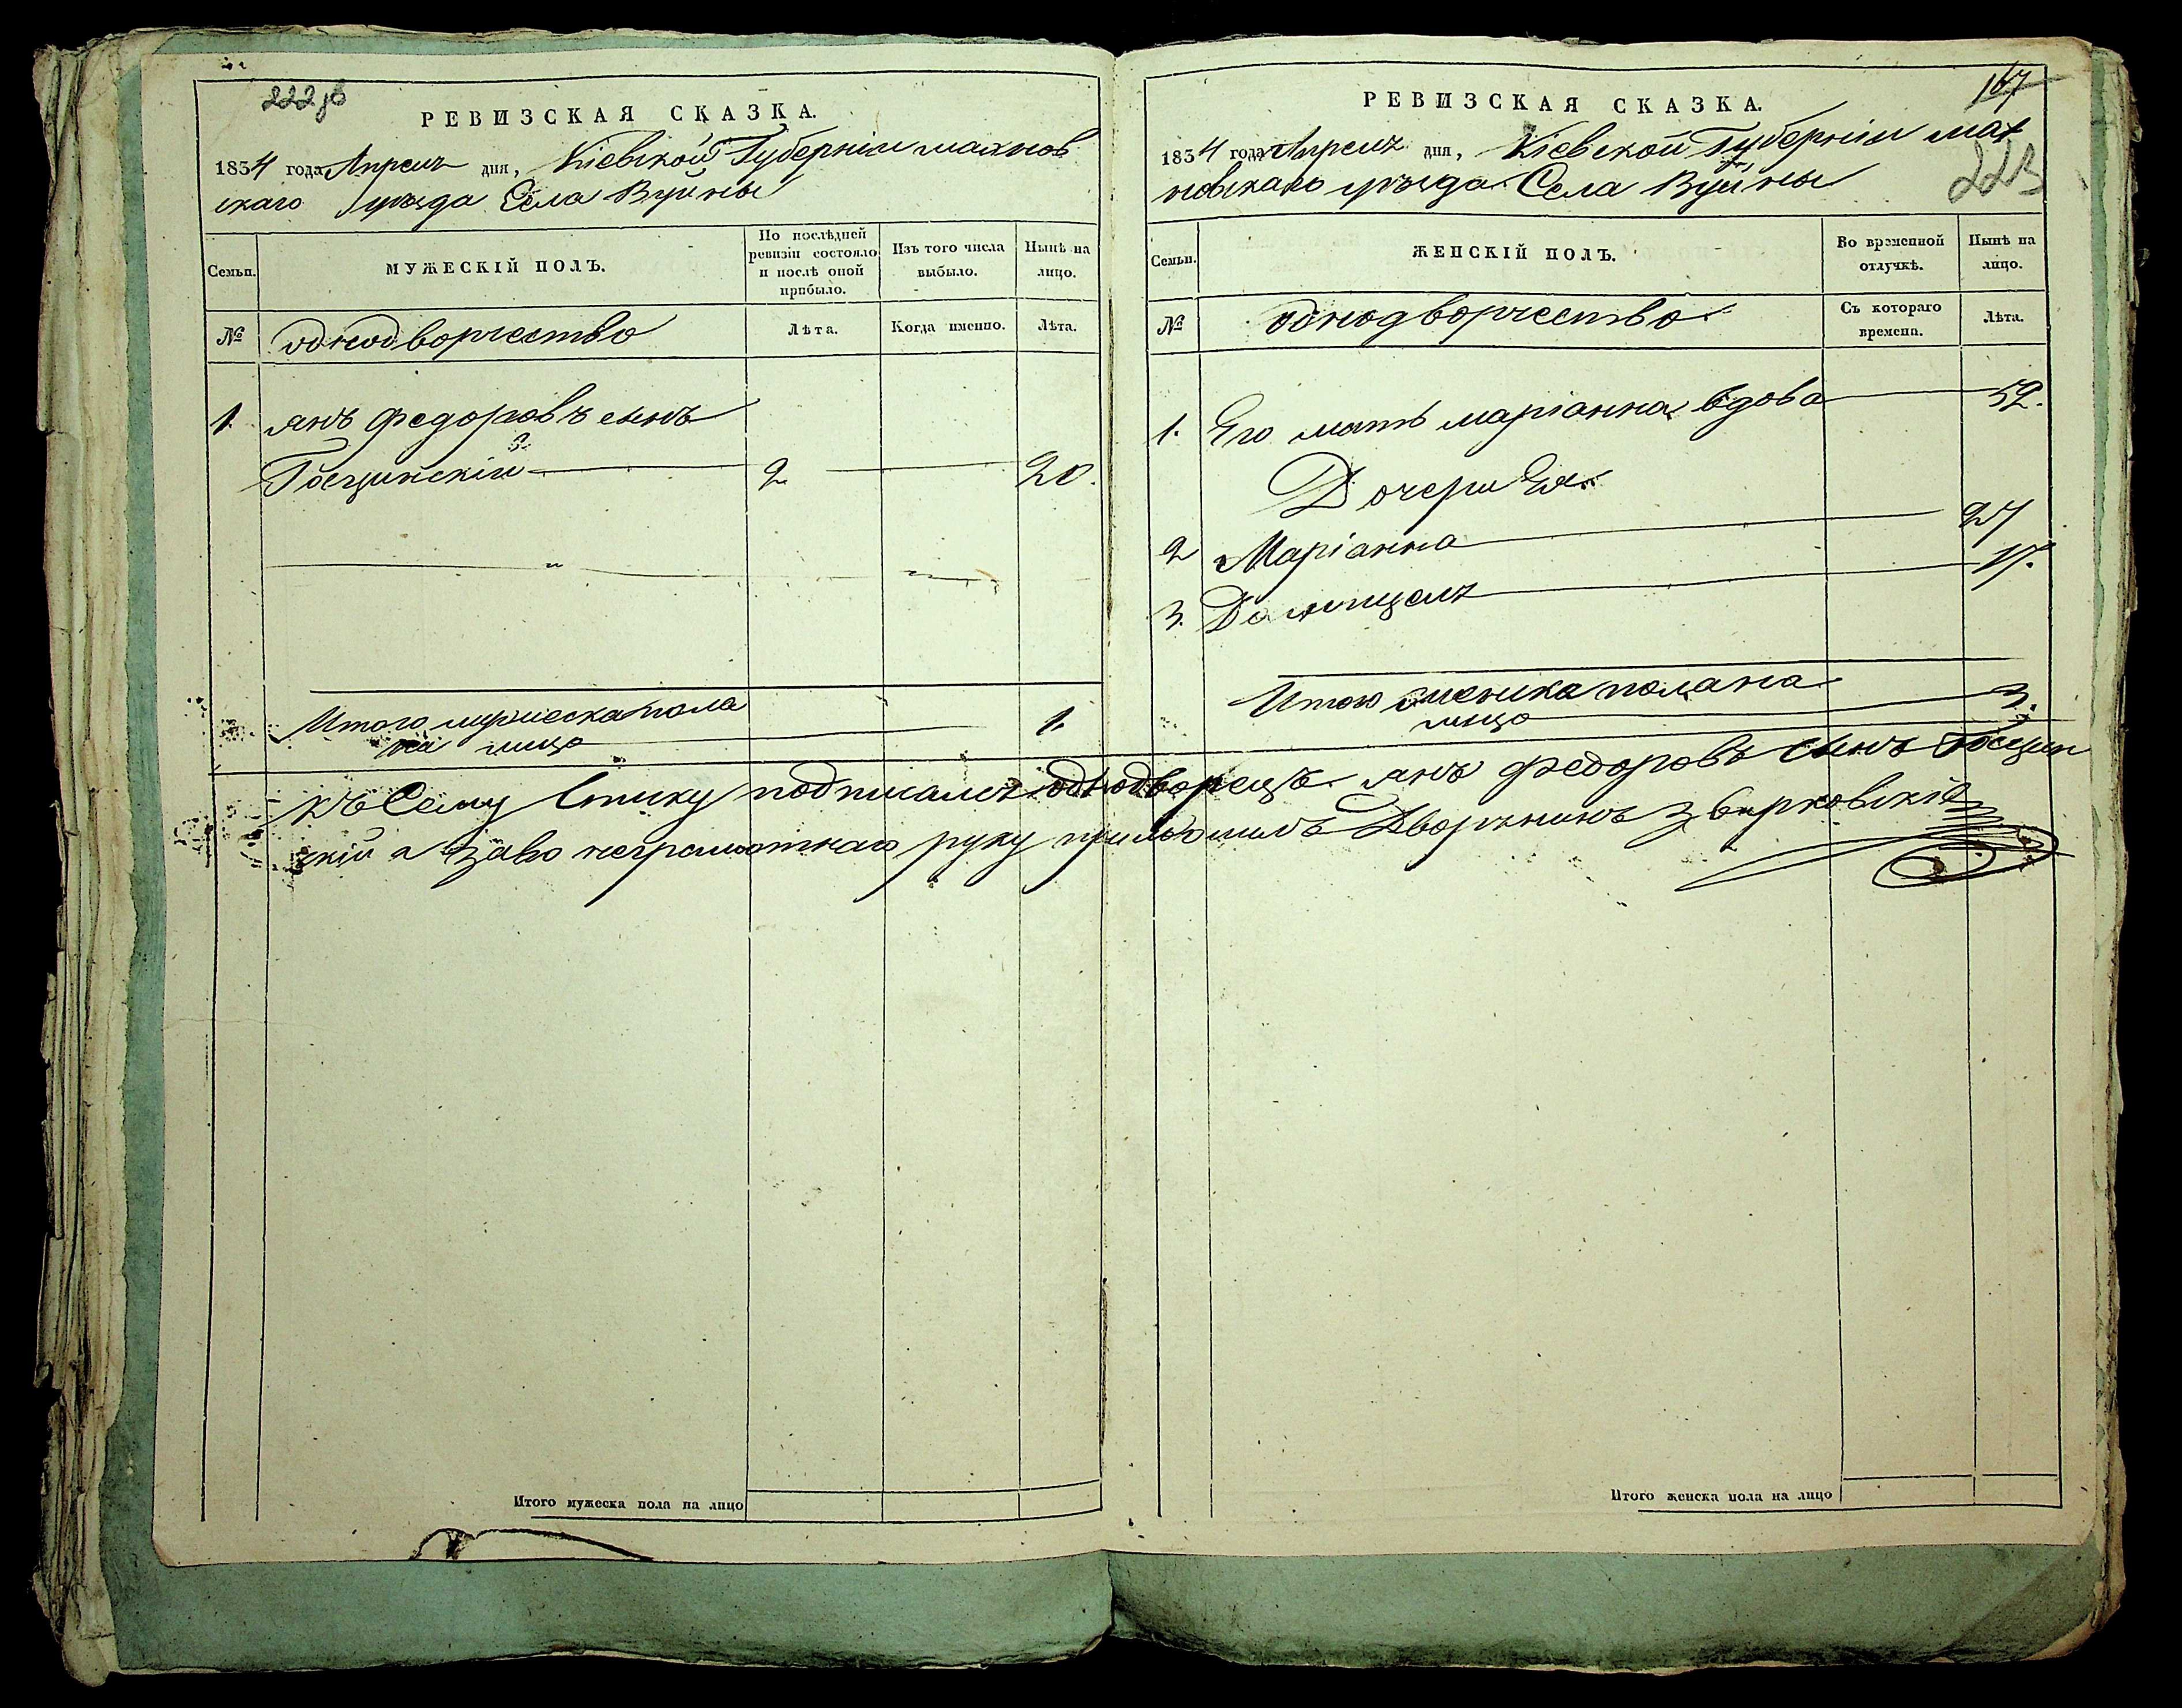 222 зв
РЕВИЗСКАЯ СКАЗКА.
1834 года Апреля дня, Кіевской Губерніи махнов
скаго уѣзда Села Вуйны
Семьи.
МУЖЕСКІЙ ПОЛЪ.
По послѣдней ревизіи состояло и послѣ оной прибыло.
Изъ того числа выбыло.
Нынѣ на лицо.
№
однодворчество
Лѣта.
Когда именно.
Лѣта.
1. янъ федоровъ сынъ
Гощинскій 2 20.
Итого мужеска пола
на лицо 1.
167
223
РЕВИЗСКАЯ СКАЗКА.
1834 года Апреля дня, Кіевской Губерніи мах
новскаго уѣзда Села Вуйны
Семьи.
ЖЕНСКІЙ ПОЛЪ.
Во временной отлучкѣ.
Нынѣ на лицо.
№
однодворчество
Съ котораго времени.
Лѣта.
1. Его мать маріанна вдова 52.
Дочери Ея
2 Маріанна 27
3. 17.
Итого женска пола на
лицо 3.
къ Сему Списку подписался однодворецъ янъ федоровъ сынъ Гощин
скій а за во неграмотнаго руку приложилъ Дворянинъ
Итого мужеска пола на лицо
Итого женска пола на лицо